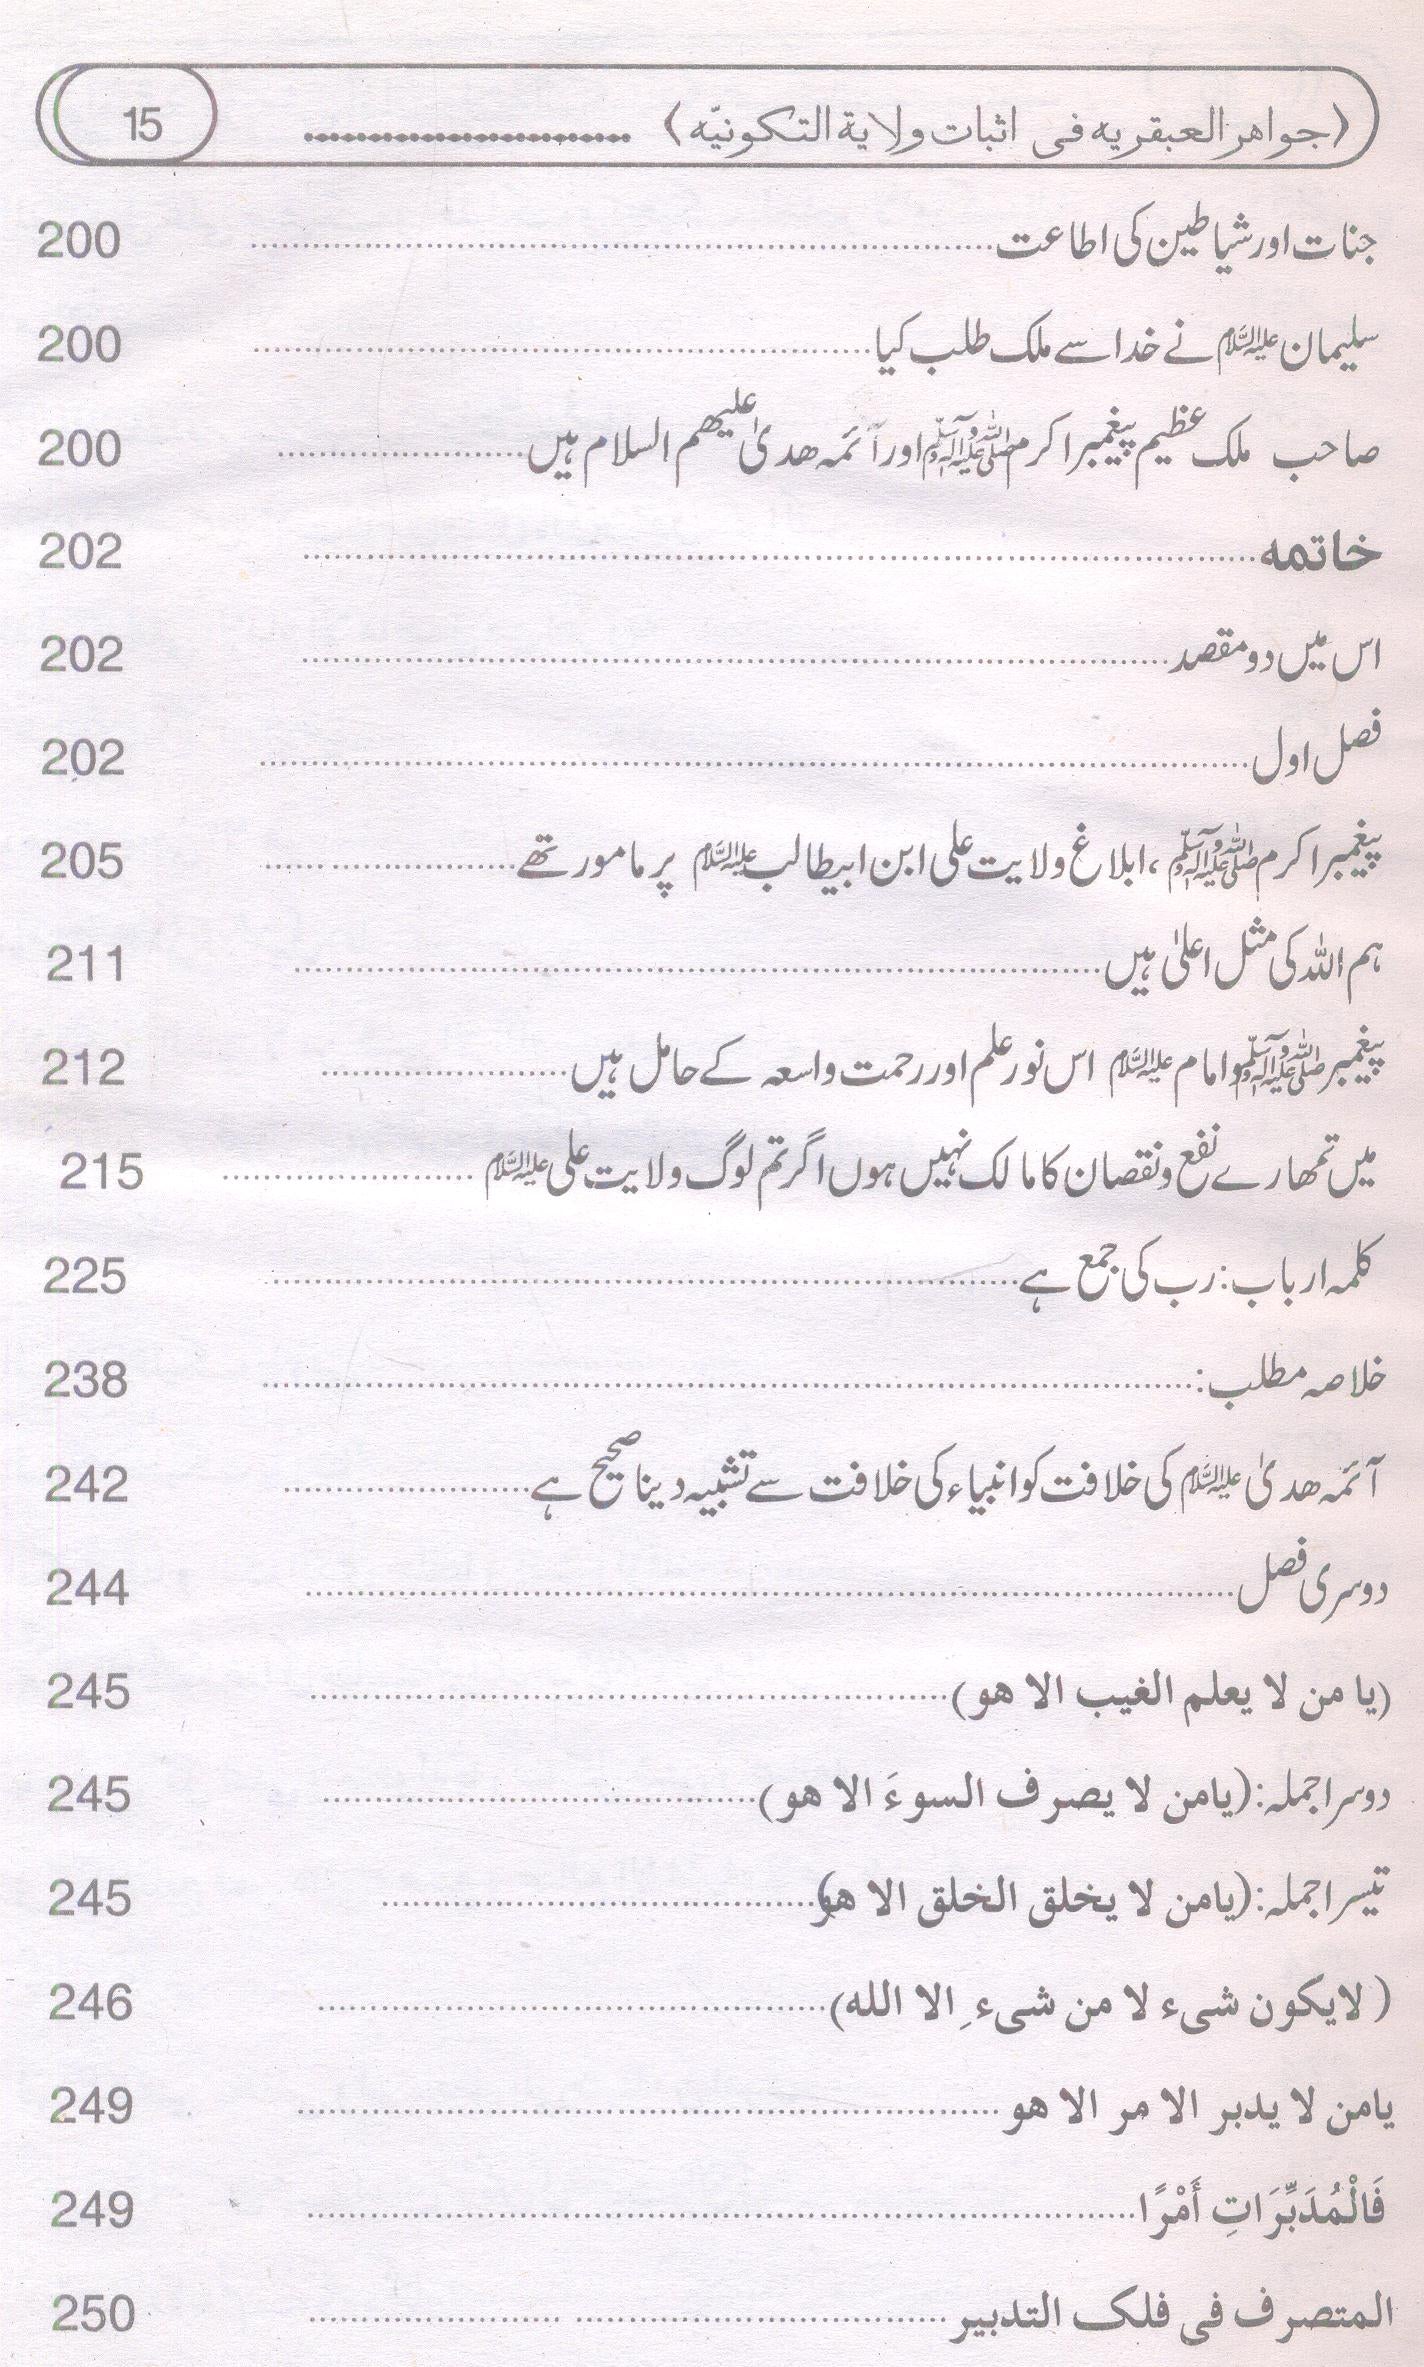 ﴿جواهر العبقریه فی اثبات ولایة التکونیّه﴾ ........................ 15
جنات اور شیاطین کی اطاعت ........................ 200
سلیمان علیہ السلام نے خدا سے ملک طلب کیا ........................ 200
صاحب ملک عظیم پیغمبر اکرم صلی اللہ علیہ وآلہ وسلم اور آئمہ ھدیٰ علیھم السلام ہیں ........................ 200
خاتمه ........................ 202
اس میں دو مقصد ........................ 202
فصل اول ........................ 202
پیغمبر اکرم صلی اللہ علیہ وآلہ وسلم، ابلاغ ولایت علی ابن ابیطالب علیہ السلام پر مامور تھے ........................ 205
ہم اللہ کی مثل اعلیٰ ہیں ........................ 211
پیغمبر صلی اللہ علیہ وآلہ وسلم و امام علیہ السلام اس نور علم اور رحمت واسعہ کے حامل ہیں ........................ 212
میں تمھارے نفع و نقصان کا مالک نہیں ہوں اگر تم لوگ ولایت علی علیہ السلام ........................ 215
کلمہ ارباب: رب کی جمع ہے ........................ 225
خلاصہ مطلب: ........................ 238
آئمہ ھدیٰ علیہ السلام کی خلافت کو انبیاء کی خلافت سے تشبیہ دینا صحیح ہے ........................ 242
دوسری فصل ........................ 244
(یا من لا یعلم الغیب الا هو) ........................ 245
دوسرا جملہ: (یامن لا یصرف السوءَ الا هو) ........................ 245
تیسرا جملہ: (یامن لا یخلق الخلق الا هو) ........................ 245
(لایکون شیء لا من شیءِ الا الله) ........................ 246
یامن لا یدبر الا مر الا هو ........................ 249
فَالْمُدَبِّرَاتِ أَمْرًا ........................ 249
المتصرف فی فلک التدبیر ........................ 250